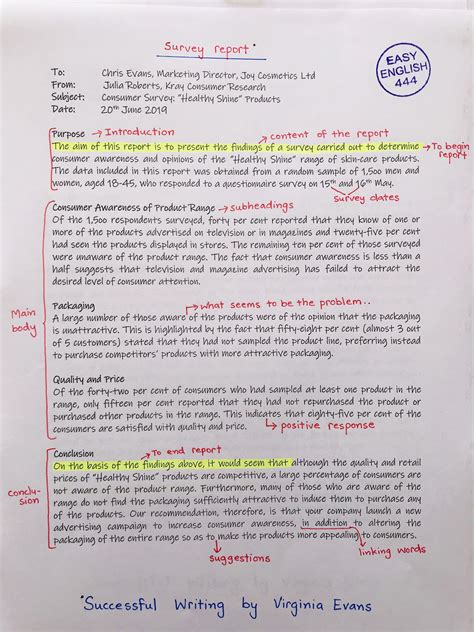 Survey report *
EASY
ENGLISH
444
To: Chris Evans, Marketing Director, Joy Cosmetics Ltd
From: Julia Roberts, Kray Consumer Research
Subject: Consumer Survey: "Healthy Shine" Products
Date: 20th June 2019
Purpose → Introduction
content of the report
The aim of this report is to present the findings of a survey carried out to determine
To begin report
consumer awareness and opinions of the "Healthy Shine" range of skin-care products.
The data included in this report was obtained from a random sample of 1,500 men and
women, aged 18-45, who responded to a questionnaire survey on 15th and 16th May.
survey dates
Main body
Consumer Awareness of Product Range → subheadings
Of the 1,500 respondents surveyed, forty per cent reported that they know of one or
more of the products advertised on television or in magazines and twenty-five per cent
had seen the products displayed in stores. The remaining ten per cent of those surveyed
were unaware of the product range. The fact that consumer awareness is less than a
half suggests that television and magazine advertising has failed to attract the
desired level of consumer attention.
Packaging
what seems to be the problem..
A large number of those aware of the products were of the opinion that the packaging
is unattractive. This is highlighted by the fact that fifty-eight per cent (almost 3 out
of 5 customers) stated that they had not sampled the product line, preferring instead
to purchase competitors' products with more attractive packaging.
Quality and Price
Of the forty-two per cent of consumers who had sampled at least one product in the
range, only fifteen per cent reported that they had not repurchased the product or
purchased other products in the range. This indicates that eighty-five per cent of the
consumers are satisfied with quality and price.
positive response
conclusion
Conclusion
To end report
On the basis of the findings above, it would seem that although the quality and retail
prices of "Healthy Shine" products are competitive, a large percentage of consumers are
not aware of the product range. Furthermore, many of those who are aware of the
range do not find the packaging sufficiently attractive to induce them to purchase any
of the products. Our recommendation, therefore, is that your company launch a new
advertising campaign to increase consumer awareness, in addition to altering the
packaging of the entire range so as to make the products more appealing to consumers.
suggestions
linking words
*Successful Writing by Virginia Evans